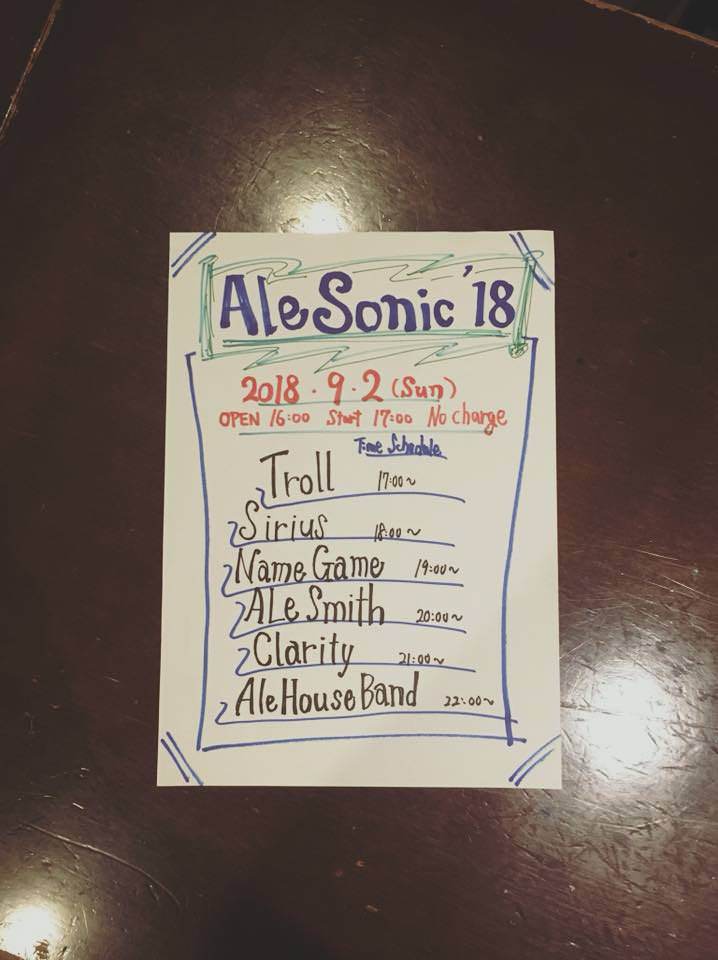 AleSonic '18
2018.9.2 (Sun)
OPEN 16:00 Start 17:00 No charge
Time Schedule
Troll 17:00~
Sirius 18:00~
Name Game 19:00~
ALe Smith 20:00~
Clarity 21:00~
Ale House Band 22:00~